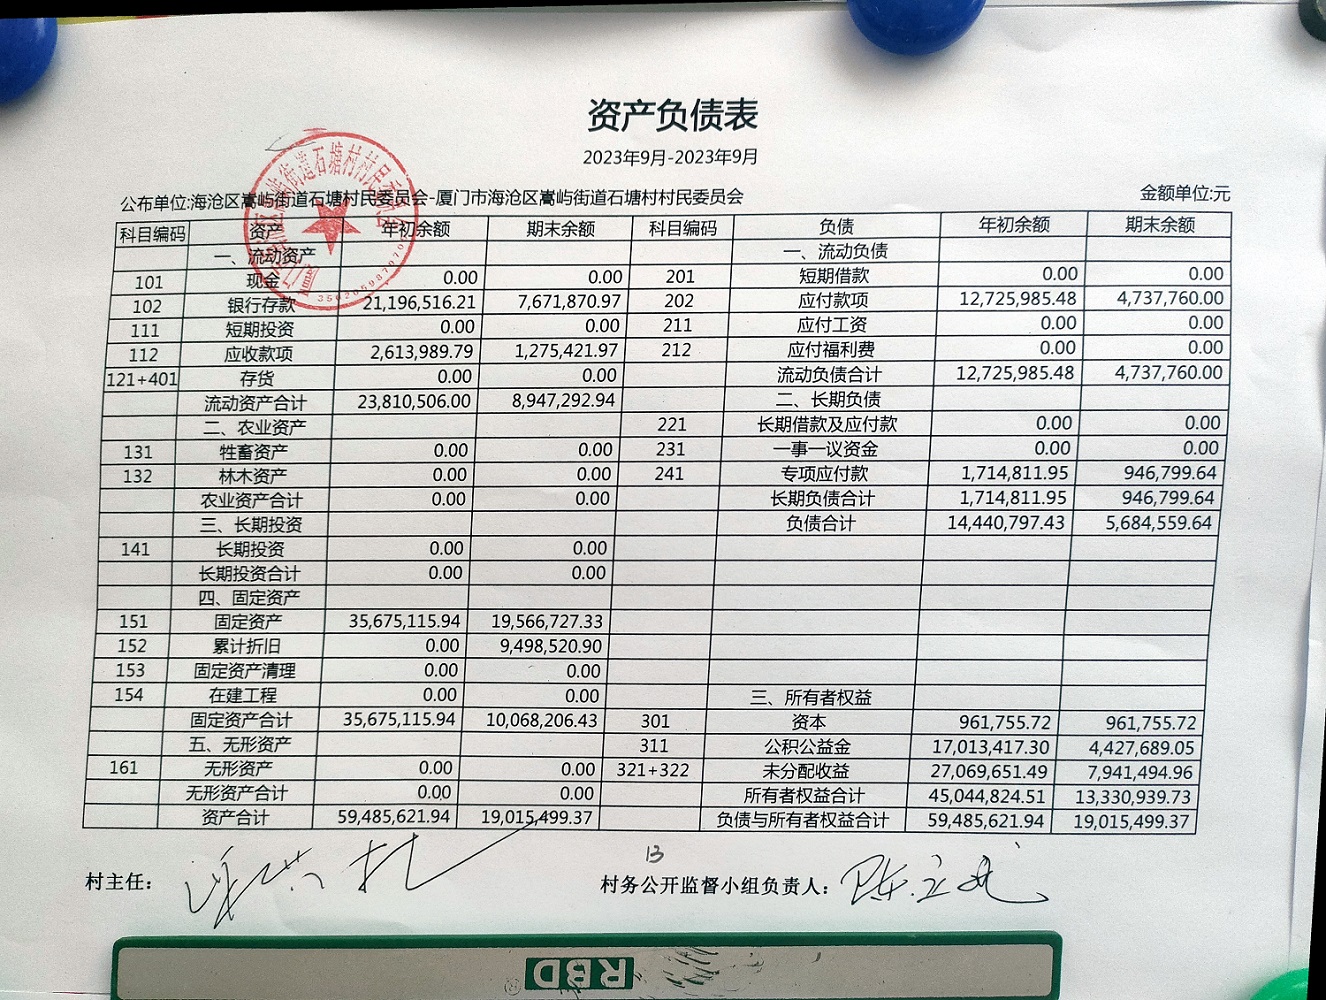 资产负债表
2023年9月-2023年9月
公布单位:海沧区嵩屿街道石塘村民委员会-厦门市海沧区嵩屿街道石塘村村民委员会 金额单位:元
科目编码 资产 年初余额 期末余额 科目编码 负债 年初余额 期末余额
一、流动资产 一、流动负债
101 现金 0.00 0.00 201 短期借款 0.00 0.00
102 银行存款 21,196,516.21 7,671,870.97 202 应付款项 12,725,985.48 4,737,760.00
111 短期投资 0.00 0.00 211 应付工资 0.00 0.00
112 应收款项 2,613,989.79 1,275,421.97 212 应付福利费 0.00 0.00
121+401 存货 0.00 0.00 流动负债合计 12,725,985.48 4,737,760.00
流动资产合计 23,810,506.00 8,947,292.94 二、长期负债
二、农业资产 221 长期借款及应付款 0.00 0.00
131 牲畜资产 0.00 0.00 231 一事一议资金 0.00 0.00
132 林木资产 0.00 0.00 241 专项应付款 1,714,811.95 946,799.64
农业资产合计 0.00 0.00 长期负债合计 1,714,811.95 946,799.64
三、长期投资 负债合计 14,440,797.43 5,684,559.64
141 长期投资 0.00 0.00
长期投资合计 0.00 0.00
四、固定资产
151 固定资产 35,675,115.94 19,566,727.33
152 累计折旧 0.00 9,498,520.90
153 固定资产清理 0.00 0.00
154 在建工程 0.00 0.00 三、所有者权益
固定资产合计 35,675,115.94 10,068,206.43 301 资本 961,755.72 961,755.72
五、无形资产 311 公积公益金 17,013,417.30 4,427,689.05
161 无形资产 0.00 0.00 321+322 未分配收益 27,069,651.49 7,941,494.96
无形资产合计 0.00 0.00 所有者权益合计 45,044,824.51 13,330,939.73
资产合计 59,485,621.94 19,015,499.37 负债与所有者权益合计 59,485,621.94 19,015,499.37
13
村主任： 村务公开监督小组负责人：
RBD